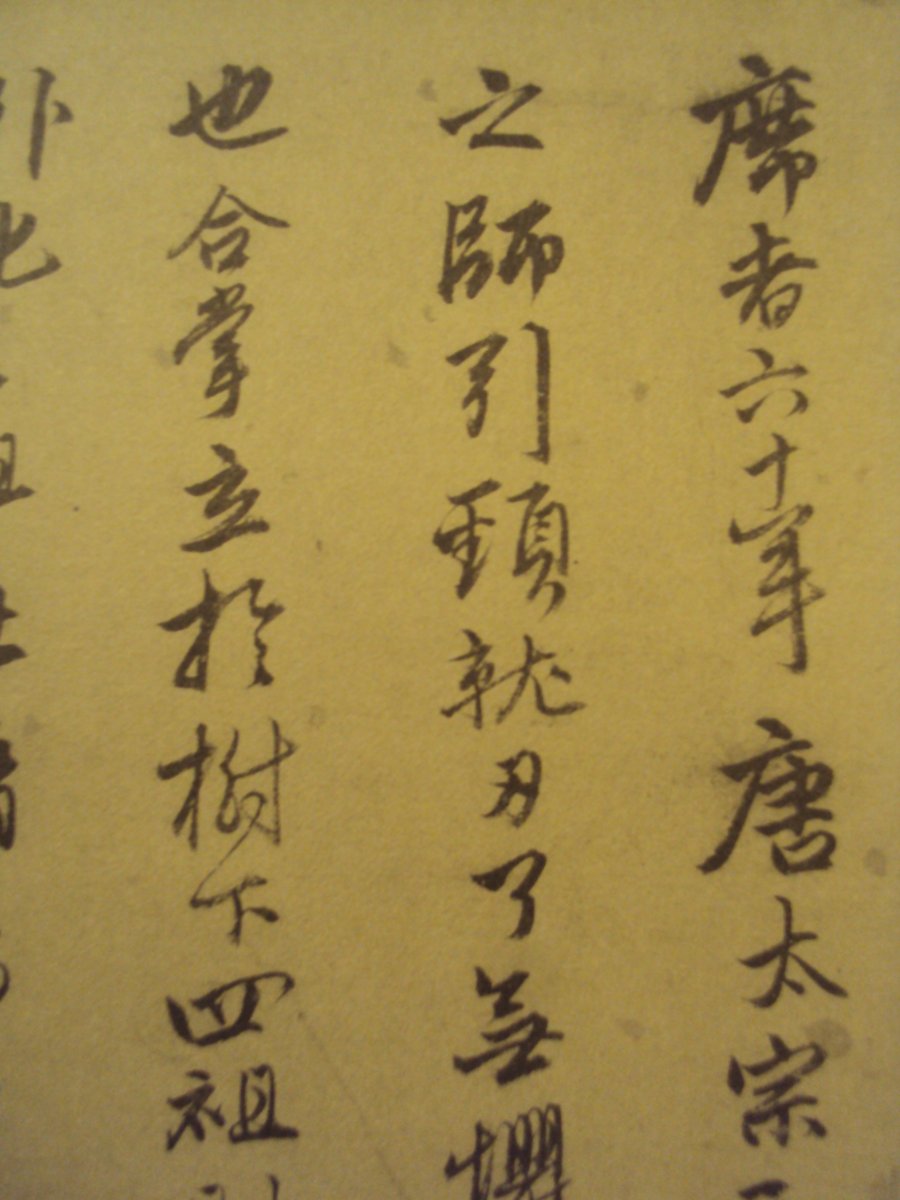 席者六十年唐太宗
之師引頸就刃了無懼
也合掌立於樹下四祖